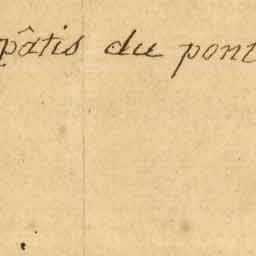 pâtis du pont